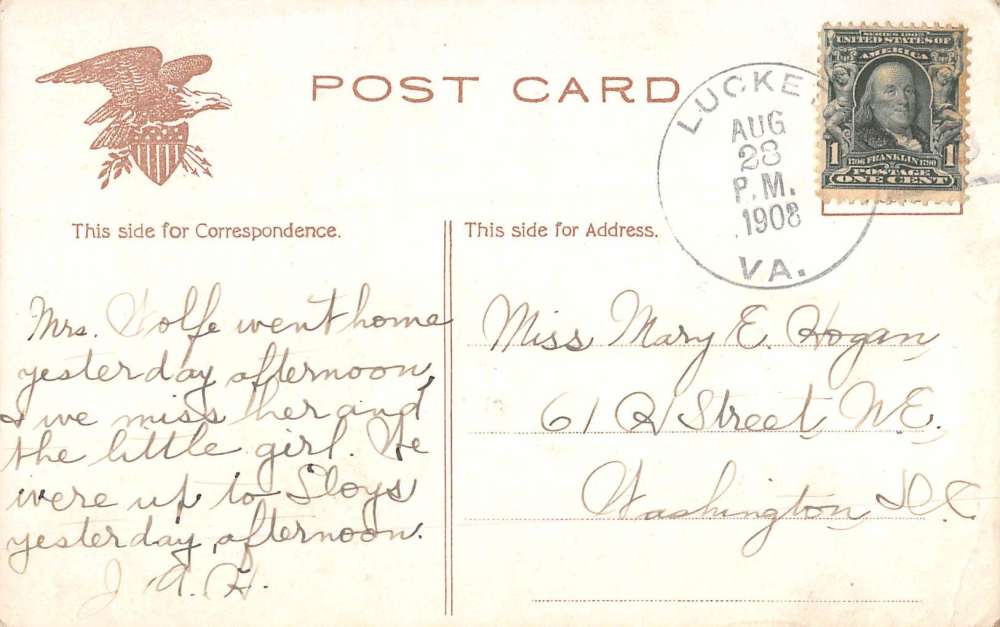 POST CARD
LUCKE
AUG
28
P.M.
1908
VA.
SERIES 1902
UNITED STATES OF
AMERICA
1 1
1706 FRANKLIN 1790
POSTAGE
ONE CENT
This side for Correspondence.
Mrs. Wolfe went home
yesterday afternoon,
& we miss her and
the little girl. We
were up to Sloys
yesterday afternoon.
J. A. H.
This side for Address.
Miss Mary E. Hogan
61 Q Street, N.E.
Washington D.C.